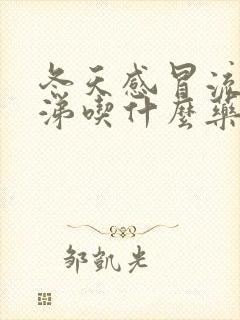 冬天感冒流
涕喫什麼藥
邹凱光